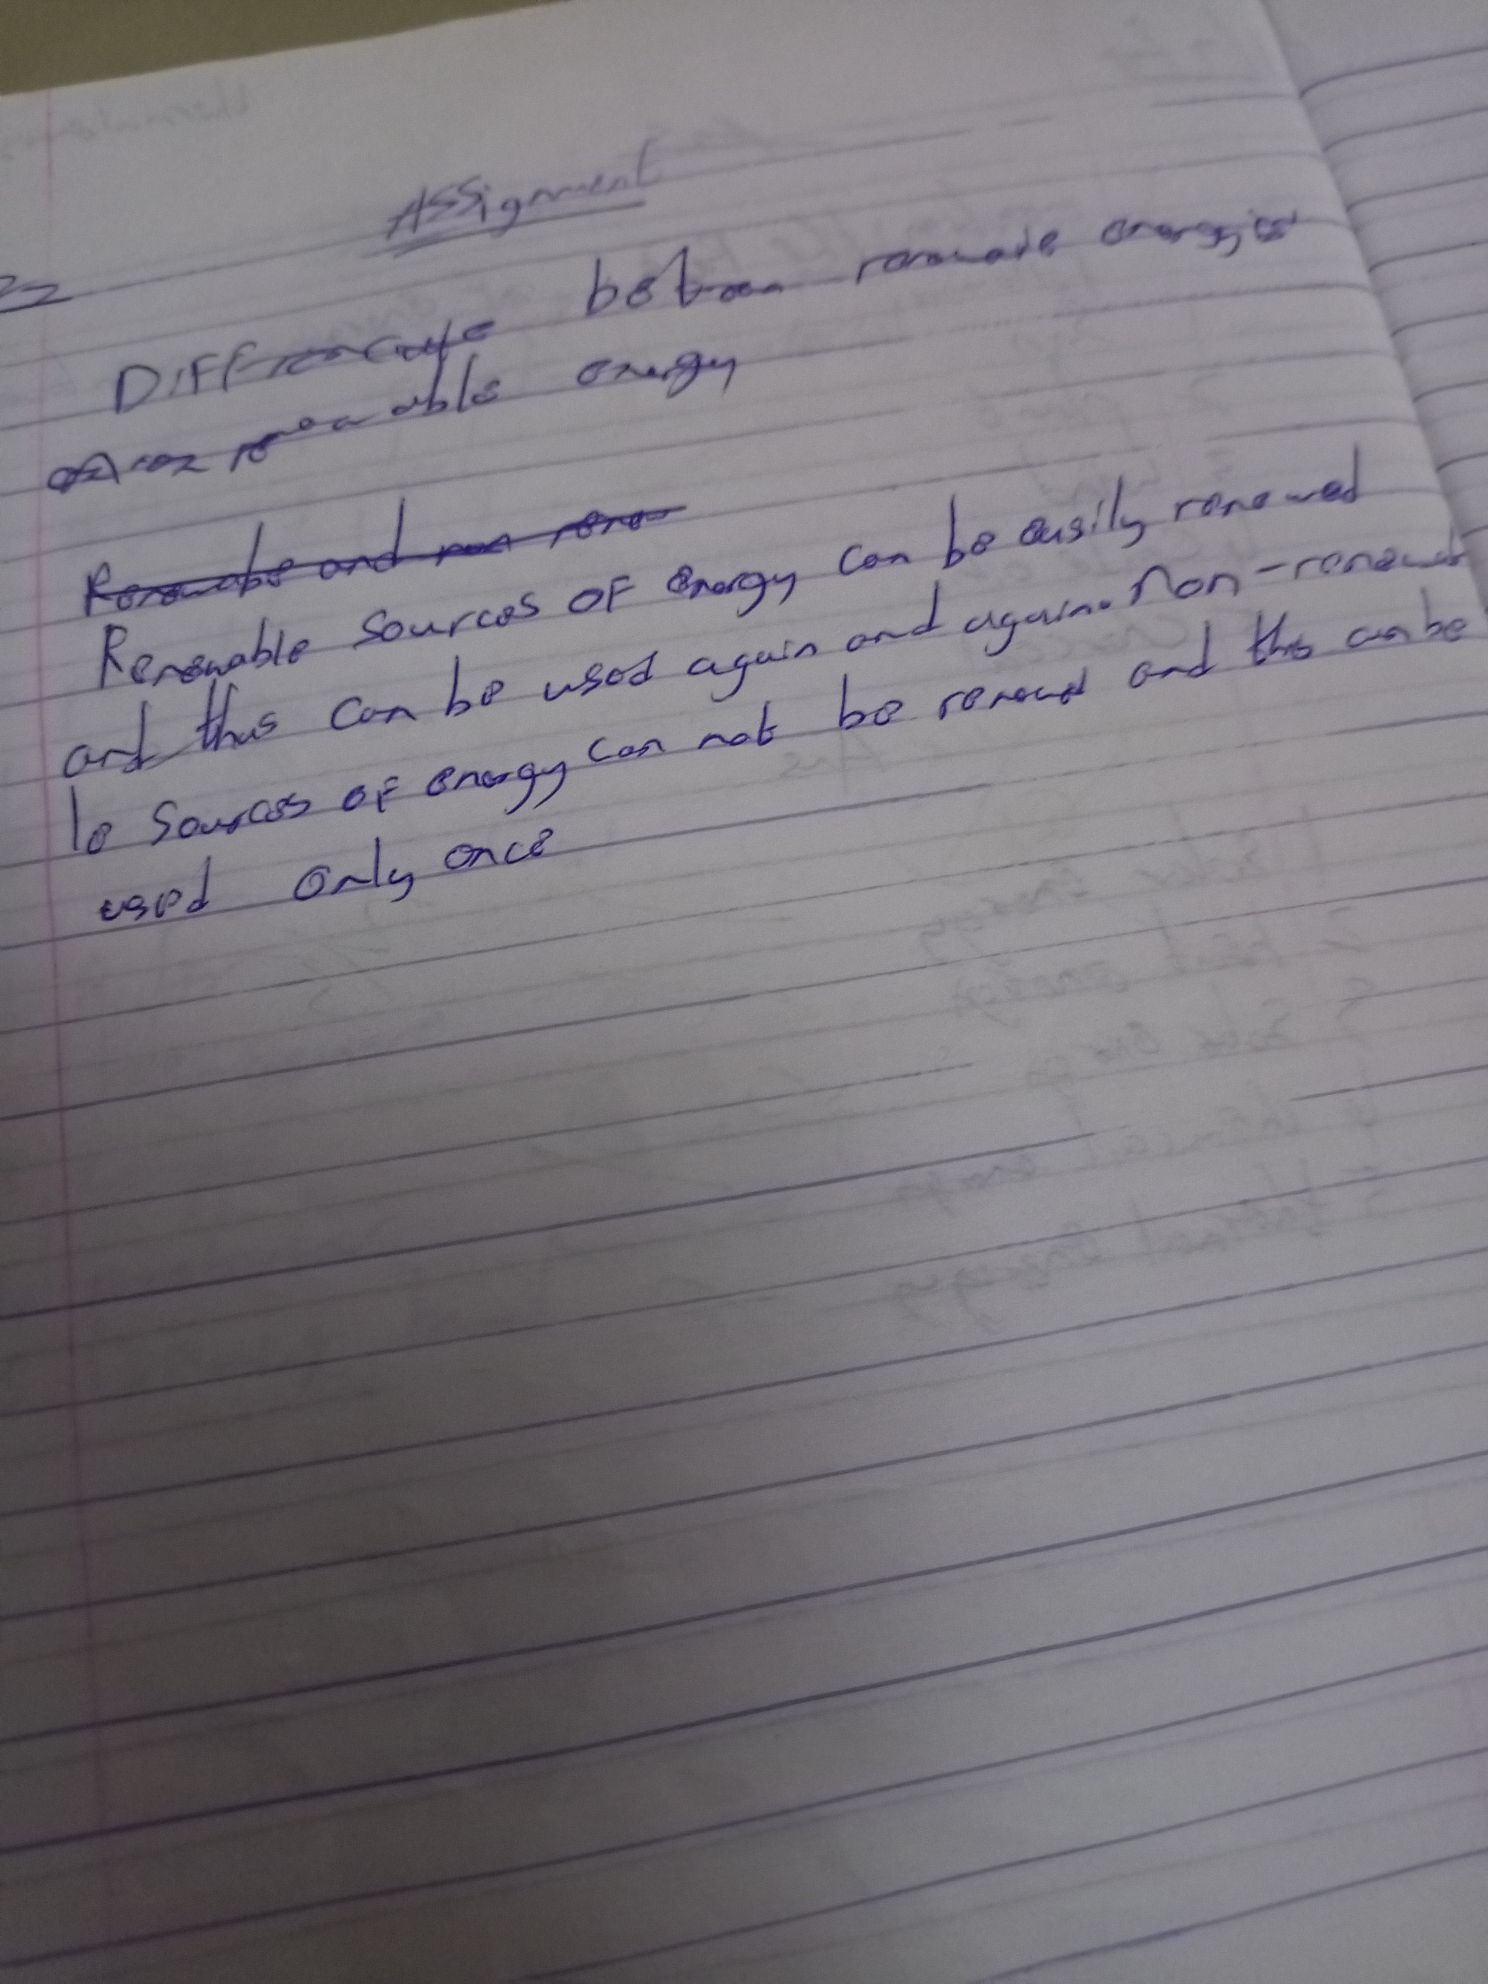 Assignment
Diffrenciate between renewable energies
renewable energy
Renewabe and non renew
Renewable Sources OF energy can be easily renewed
and thus can be used again and again. Non-renewab
le Sources OF energy can not be renewed and thus can be
used only once